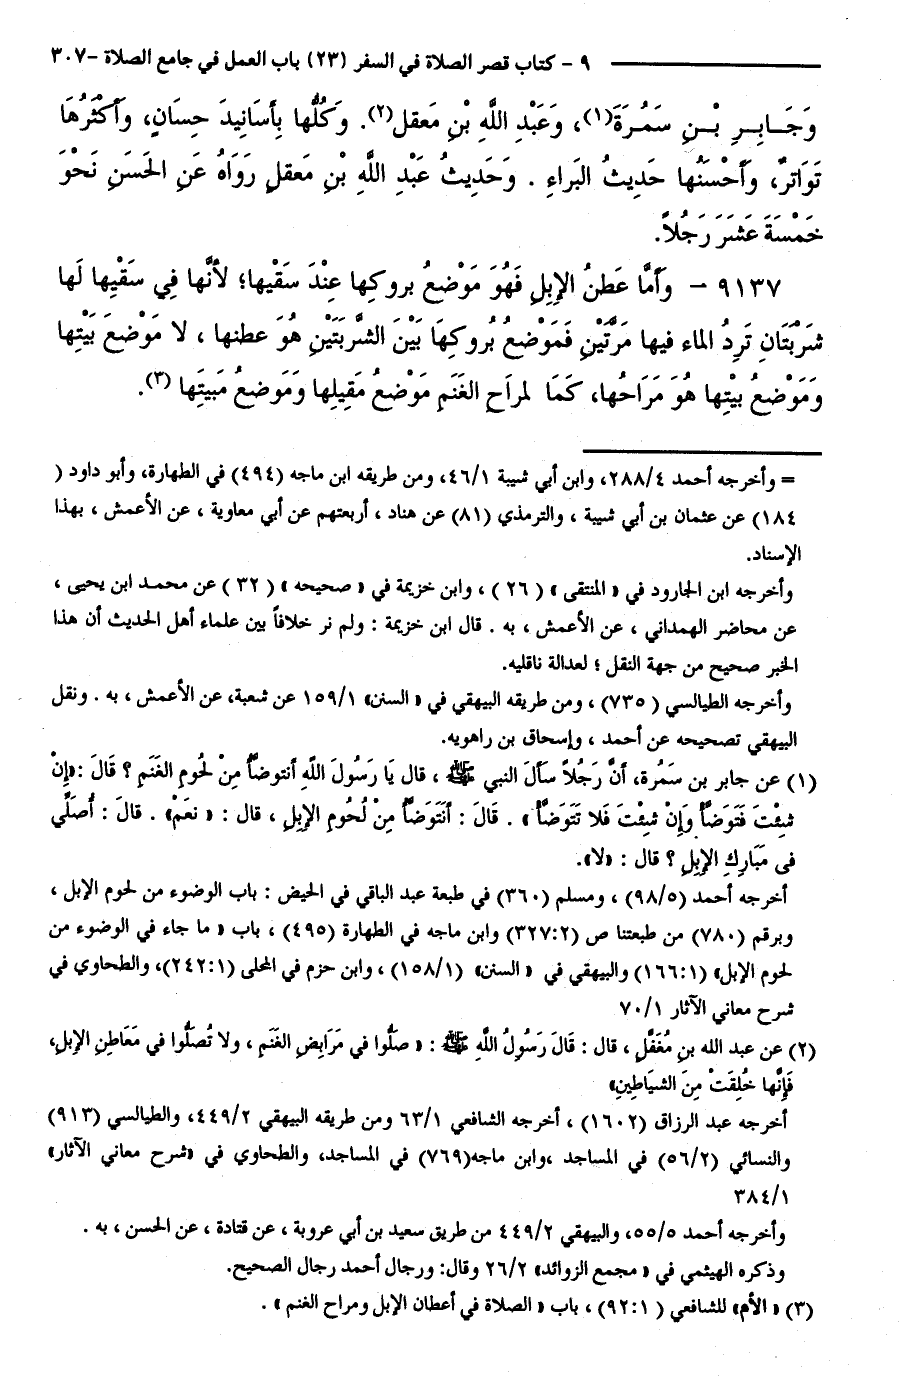 ٩ - كتاب قصر الصلاة في السفر (٢٣) باب العمل في جامع الصلاة - ٣٠٧
وَجَـابِـرِ بْـنِ سَمُـرَةَ(١)، وَعَبْدِ اللَّهِ بْنِ مَعقل(٢). وَكُلُّها بِأَسَانِيدَ حِسَانٍ، وَأَكْثَرُهَا
تَوَاترٌ، وَأَحْسَنُها حَدِيثُ البَراءِ . وَحَدِيثُ عَبْدِ اللَّهِ بْنِ مَعقلٍ رَوَاهُ عَنِ الحَسَنِ نَحْوَ
خَمْسَةَ عَشَرَ رَجُلاً.
٩١٣٧ - وَأَمَّا عَطنُ الإِبِلِ فَهُوَ مَوْضعُ بروكها عِنْدَ سَقْيها؛ لأَنَّها فِي سَقْيِها لَها
شَرْبَتَانِ تَرِدُ الماء فيها مَرَّتَيْنِ فَمَوْضعُ بُروكِهَا بَيْنَ الشَّربَتَيْنِ هُوَ عطنها ، لا مَوْضعَ بَيْتِها
وَمَوْضعُ بيْتِها هُوَ مَرَاحُها، كَمَا لمراَحِ الغَنَمِ مَوْضعُ مَقِيلِها وَمَوضعُ مَبيتَِها (٣).
= وأخرجه أحمد ٢٨٨/٤، وابن أبي شيبة ٤٦/١، ومن طريقه ابن ماجه (٤٩٤) في الطهارة، وأبو داود (
١٨٤) عن عثمان بن أبي شيبة ، والترمذي (٨١) عن هناد ، أربعتهم عن أبي معاوية ، عن الأعمش ، بهذا
الإسناد.
وأخرجه ابن الجارود في « المنتقى » ( ٢٦ ) ، وابن خزيمة في « صحيحه » ( ٣٢ ) عن محمـد ابن يحيى ،
عن محاضر الهمداني ، عن الأعمش ، به . قال ابن خزيمة : ولم نر خلافاً بين علماء أهل الحديث أن هذا
الخبر صحيح من جهة النقل ؛ لعدالة ناقليه.
وأخرجه الطيالسي ( ٧٣٥) ، ومن طريقه البيهقي في « السنن» ١٥٩/١ عن شعبة، عن الأعمش ، به . ونقل
البيهقي تصحيحه عن أحمد ، وإسحاق بن راهويه.
(١) عن جابر بن سَمُرة، أنَّ رَجُلاً سَألَ النبي ﷺ ، قال يَا رَسُولَ اللَّهِ أنتوضَّأُ مِنْ لحُومِ الغَنَمِ ؟ قَالَ :«إِنْ
شِئْتَ فَتَوضَّأْ وَإِنْ شِئْتَ فَلا تَتَوَضَّأْ » . قَالَ : أنَتَوَضَّأُ مِنْ لُحُومِ الإِبِلِ ، قال : « نعَمْ» . قالَ : أُصَلِّي
فى مَبَارِكِ الإِبِلِ ؟ قال : «لا».
أخرجه أحمد (٩٨/٥) ، ومسلم (٣٦٠) في طبعة عبد الباقي في الحيض : باب الوضوء من لحوم الإبل ،
وبرقم (٧٨٠) من طبعتنا ص (٣٢٧:٢) وابن ماجه في الطهارة (٤٩٥) ، باب « ما جاء في الوضوء من
لحوم الإبل» (١٦٦:١) والبيهقي في « السنن» (١٥٨/١) ، وابن حزم في المحلى (٢٤٢:١)، والطحاوي في
شرح معاني الآثار ٧٠/١
(٢) عن عبد الله بنِ مُغَفَّلٍ ، قال : قَالَ رَسُولُ اللَّهِ ﷺ : « صلُّوا في مَرَابِضِ الغَنَمِ ، ولا تُصَلُّوا في مَعَاطِنِ الإِبلِ،
فَإِنَّها خُلِقَتْ مِنَ الشيَاطِينِ»
أخرجه عبد الرزاق (١٦٠٢) ، أخرجه الشافعي ٦٣/١ ومن طريقه البيهقي ٤٤٩/٢، والطيالسي (٩١٣)
والنسائي (٥٦/٢) في المساجد ،وابن ماجه(٧٦٩) في المساجد، والطحاوي في «شرح معاني الآثار»
٣٨٤/١
وأخرجه أحمد ٥٥/٥، والبيهقي ٤٤٩/٢ من طريق سعيد بن أبي عروبة ، عن قتادة ، عن الحسن ، به .
وذكره الهيثمي في « مجمع الزوائد» ٢٦/٢ وقال: ورجال أحمد رجال الصحيح.
(٣) « الأم» للشافعي ( ٩٢:١) ، باب « الصلاة في أعطان الإبل ومراح الغنم » .